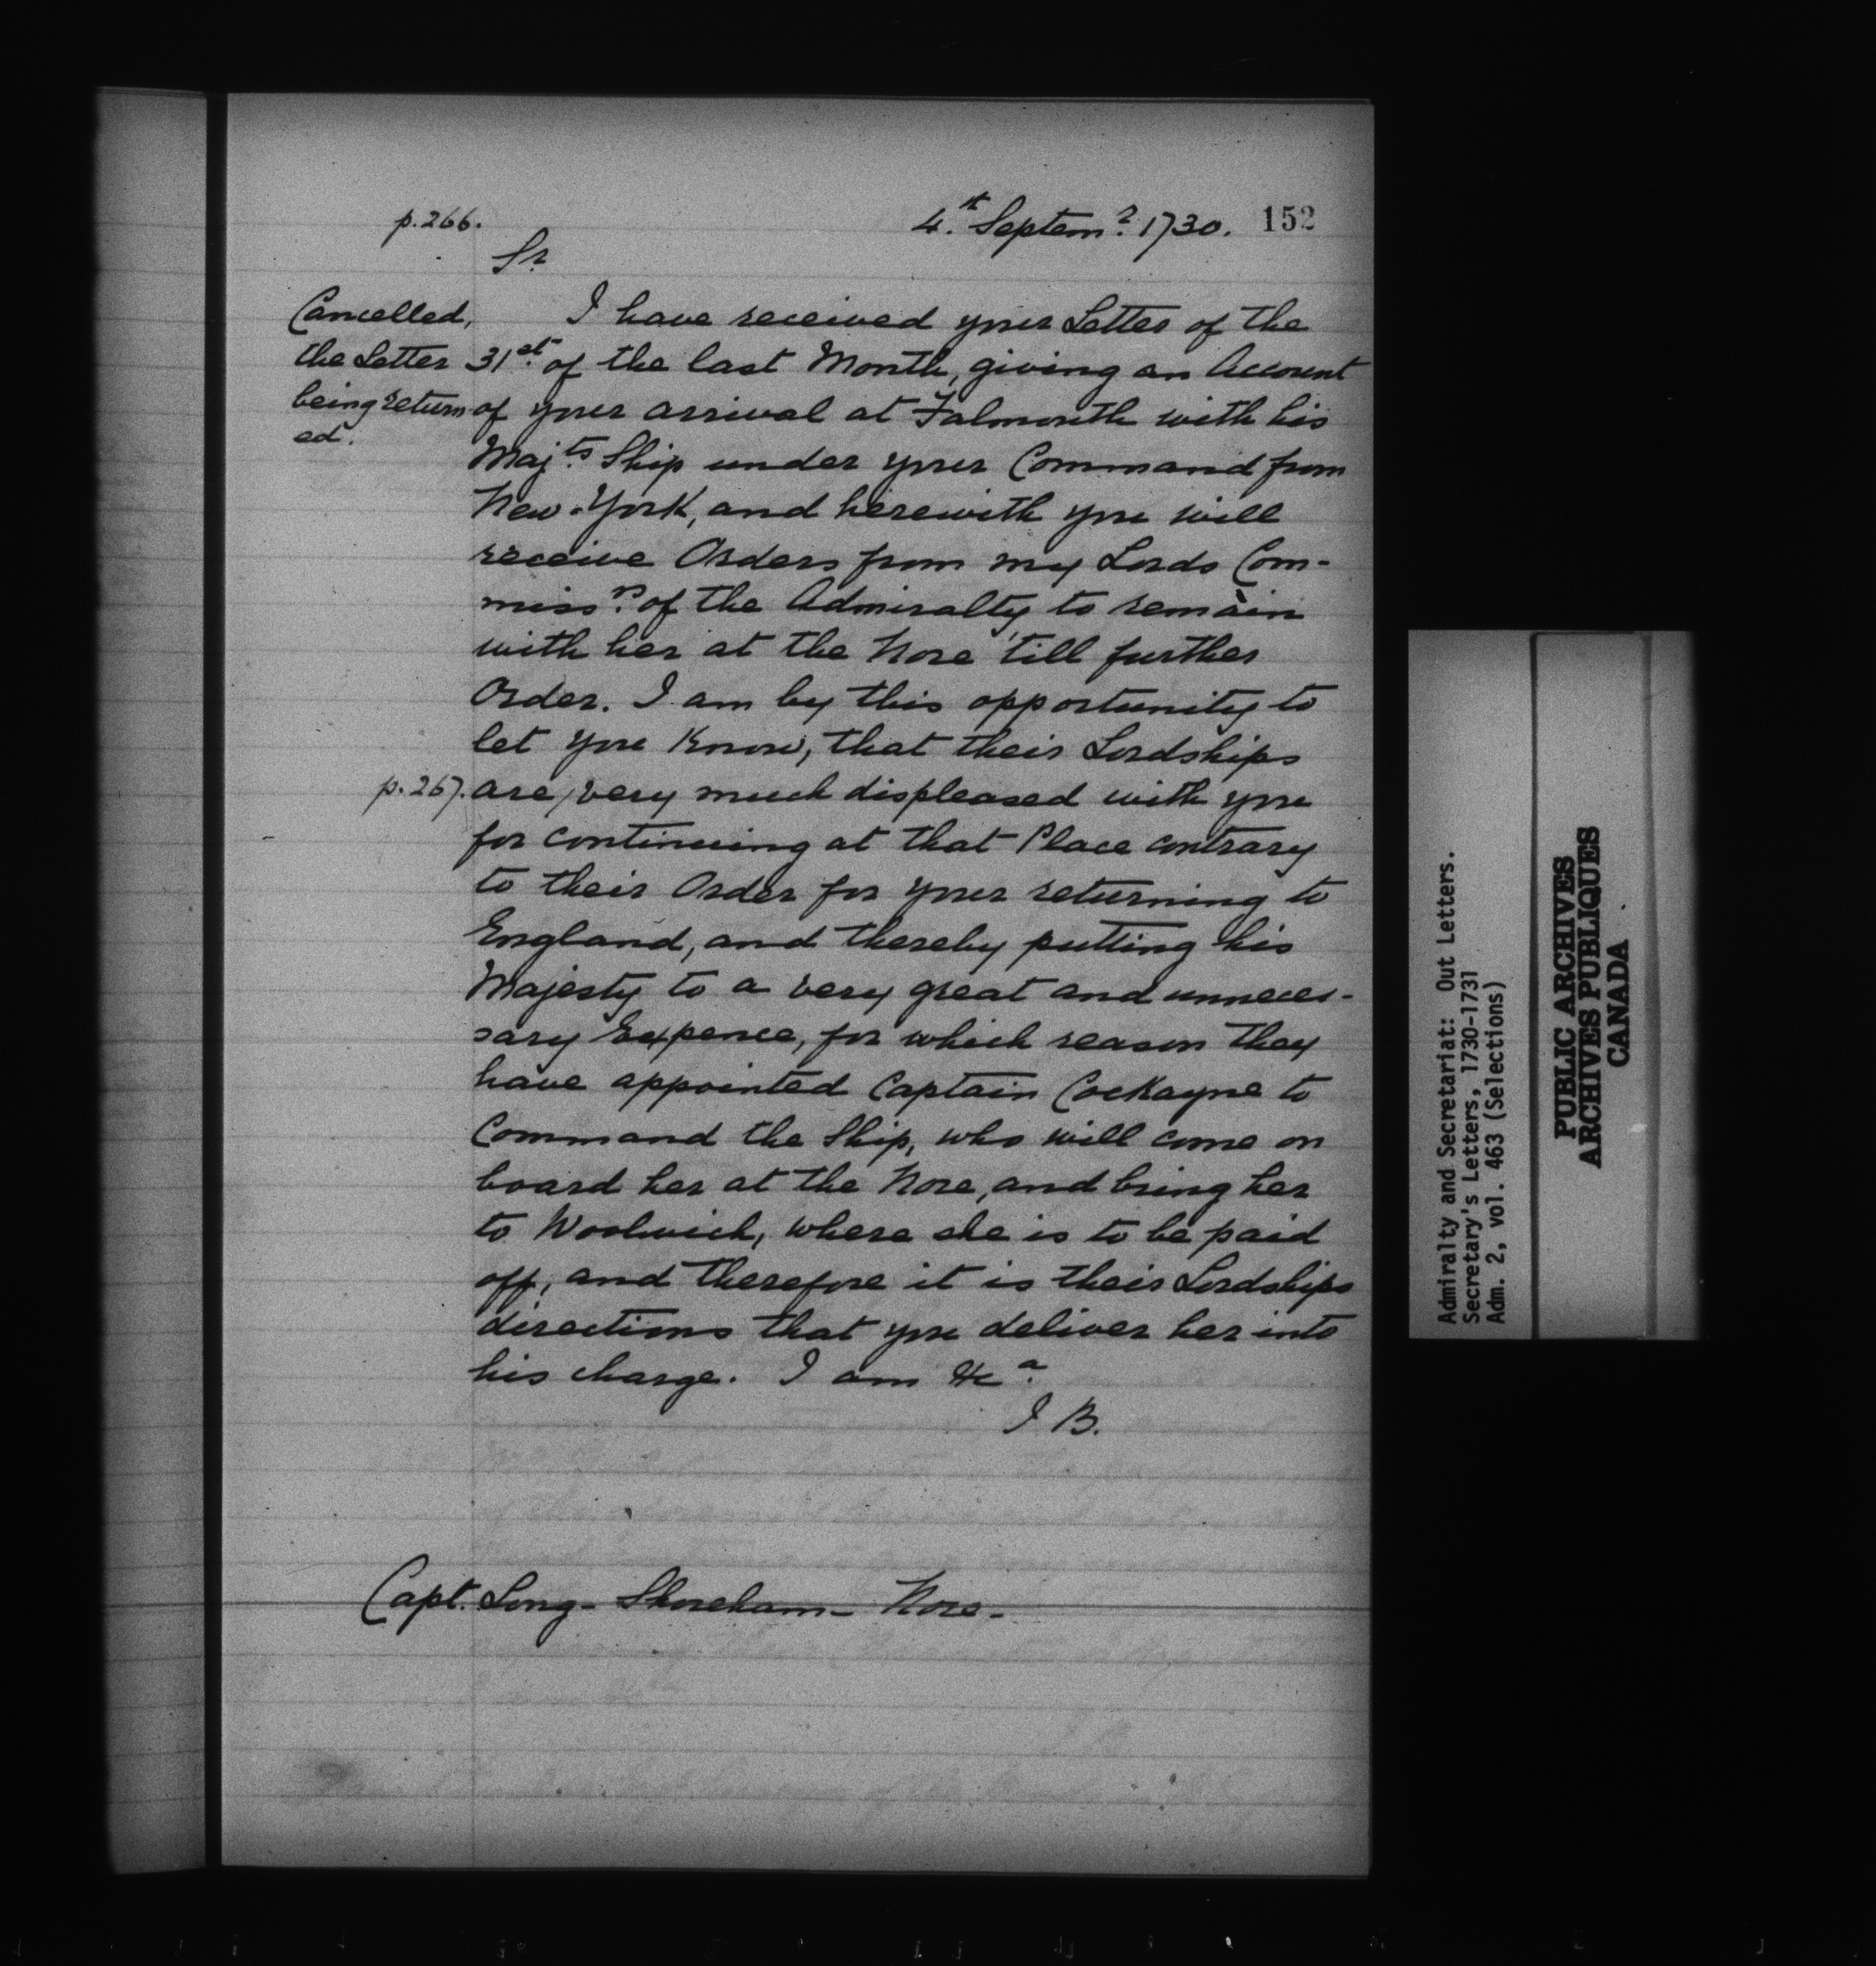 p.266.
4.th Septemr. 1730. 152
Sr.
Cancelled,
the Letter
being return
ed.
I have received your Letter of the
31st. of the last Month, giving an Account
of your arrival at Falmouth with his
Majts. Ship under your Command from
New-York, and herewith you will
receive Orders from my Lords Com-
missrs. of the Admiralty to remain
with her at the Nore 'till further
Order. I am by this opportunity to
let you Know, that their Lordships
p.267. are / very much displeased with you
for continuing at that Place contrary
to their Order for your returning to
England, and thereby putting his
Majesty to a very great and unneces-
sary Expence, for which reason they
have appointed Captain Cockayne to
Command the Ship, who will come on
board her at the Nore, and bring her
to Woolwich, where she is to be paid
off, and therefore it is their Lordships
directions that you deliver her into
his charge. I am &ca.
J B.
Capt. Long - Shoreham - Nore -
Admiralty and Secretariat: Out Letters.
Secretary's Letters, 1730-1731
Adm. 2, vol. 463 (Selections)
PUBLIC ARCHIVES
ARCHIVES PUBLIQUES
CANADA